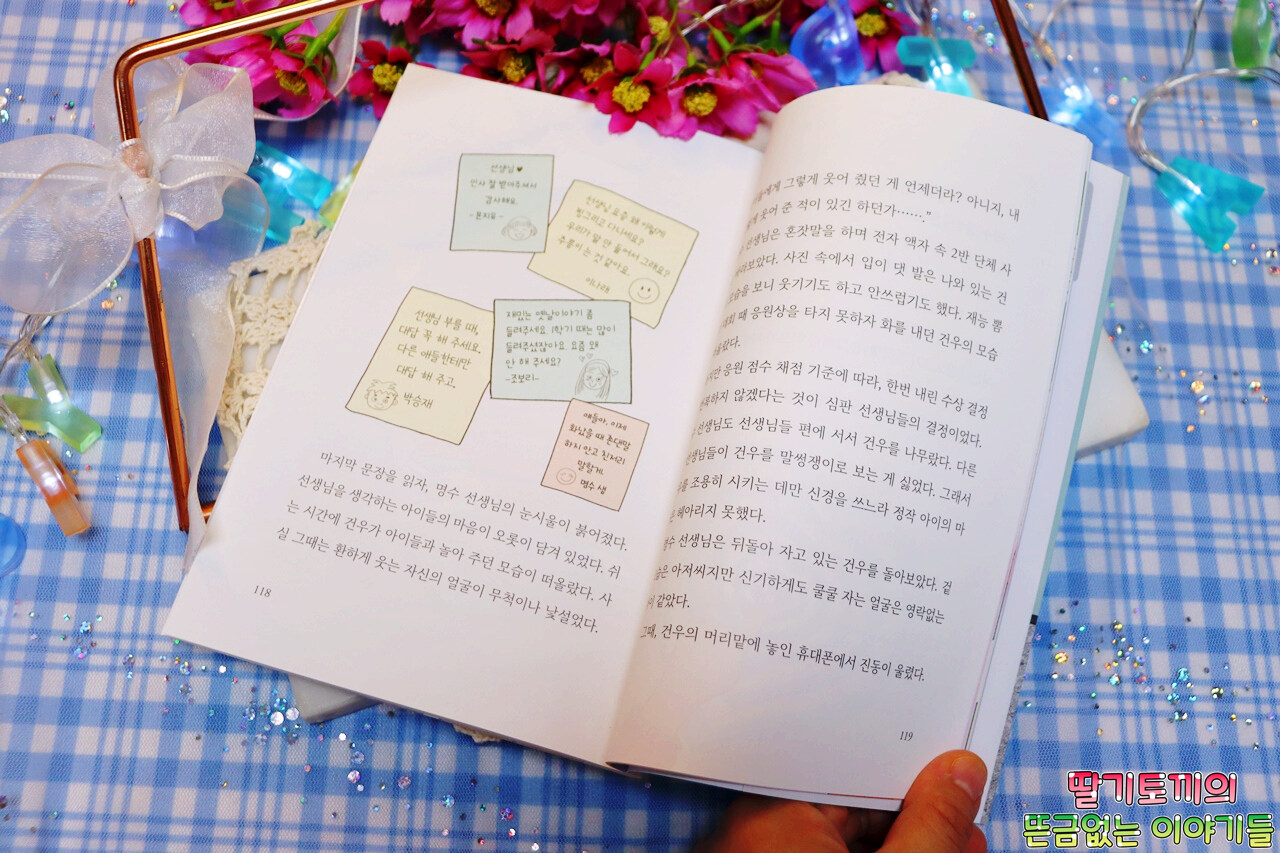 선생님♥
인사 잘 받아주셔서
감사해요.
-윤지유-
선생님 요즘 왜 이렇게
찡그리고 다니세요?
우리가 말 안 들어서 그래요?
주름이 는 것 같아요.
이나래
선생님 부를 때,
대답 꼭 해 주세요.
다른 애들한테만
대답 해 주고.
박승재
재밌는 옛날이야기 좀
들려주세요. 1학기 때는 많이
들려주셨잖아요. 요즘 왜
안 해 주세요?
-조보리-
얘들아, 이제
화났을 때 존댓말
하지 않고 친처리
말할게
명수 샘
마지막 문장을 읽자, 명수 선생님의 눈시울이 붉어졌다.
선생님을 생각하는 아이들의 마음이 오롯이 담겨 있었다. 쉬
는 시간에 건우가 아이들과 놀아 주던 모습이 떠올랐다. 사
실 그때는 환하게 웃는 자신의 얼굴이 무척이나 낯설었다.
118
에게 그렇게 웃어 줬던 게 언제더라? 아니지, 내
웃어 준 적이 있긴 하던가……."
선생님은 혼잣말을 하며 전자 액자 속 2반 단체 사
보았다. 사진 속에서 입이 댓 발은 나와 있는 건
모습을 보니 웃기기도 하고 안쓰럽기도 했다. 재능 뽐
때 응원상을 타지 못하자 화를 내던 건우의 모습
랐다.
응원 점수 채점 기준에 따라, 한번 내린 수상 결정
하지 않겠다는 것이 심판 선생님들의 결정이었다.
선생님도 선생님들 편에 서서 건우를 나무랐다. 다른
선생님들이 건우를 말썽쟁이로 보는 게 싫었다. 그래서
를 조용히 시키는 데만 신경을 쓰느라 정작 아이의 마
헤아리지 못했다.
명수 선생님은 뒤돌아 자고 있는 건우를 돌아보았다. 겉
은 아저씨지만 신기하게도 쿨쿨 자는 얼굴은 영락없는
같았다.
그때, 건우의 머리맡에 놓인 휴대폰에서 진동이 울렸다.
119
딸기토끼의
뜬금없는 이야기들